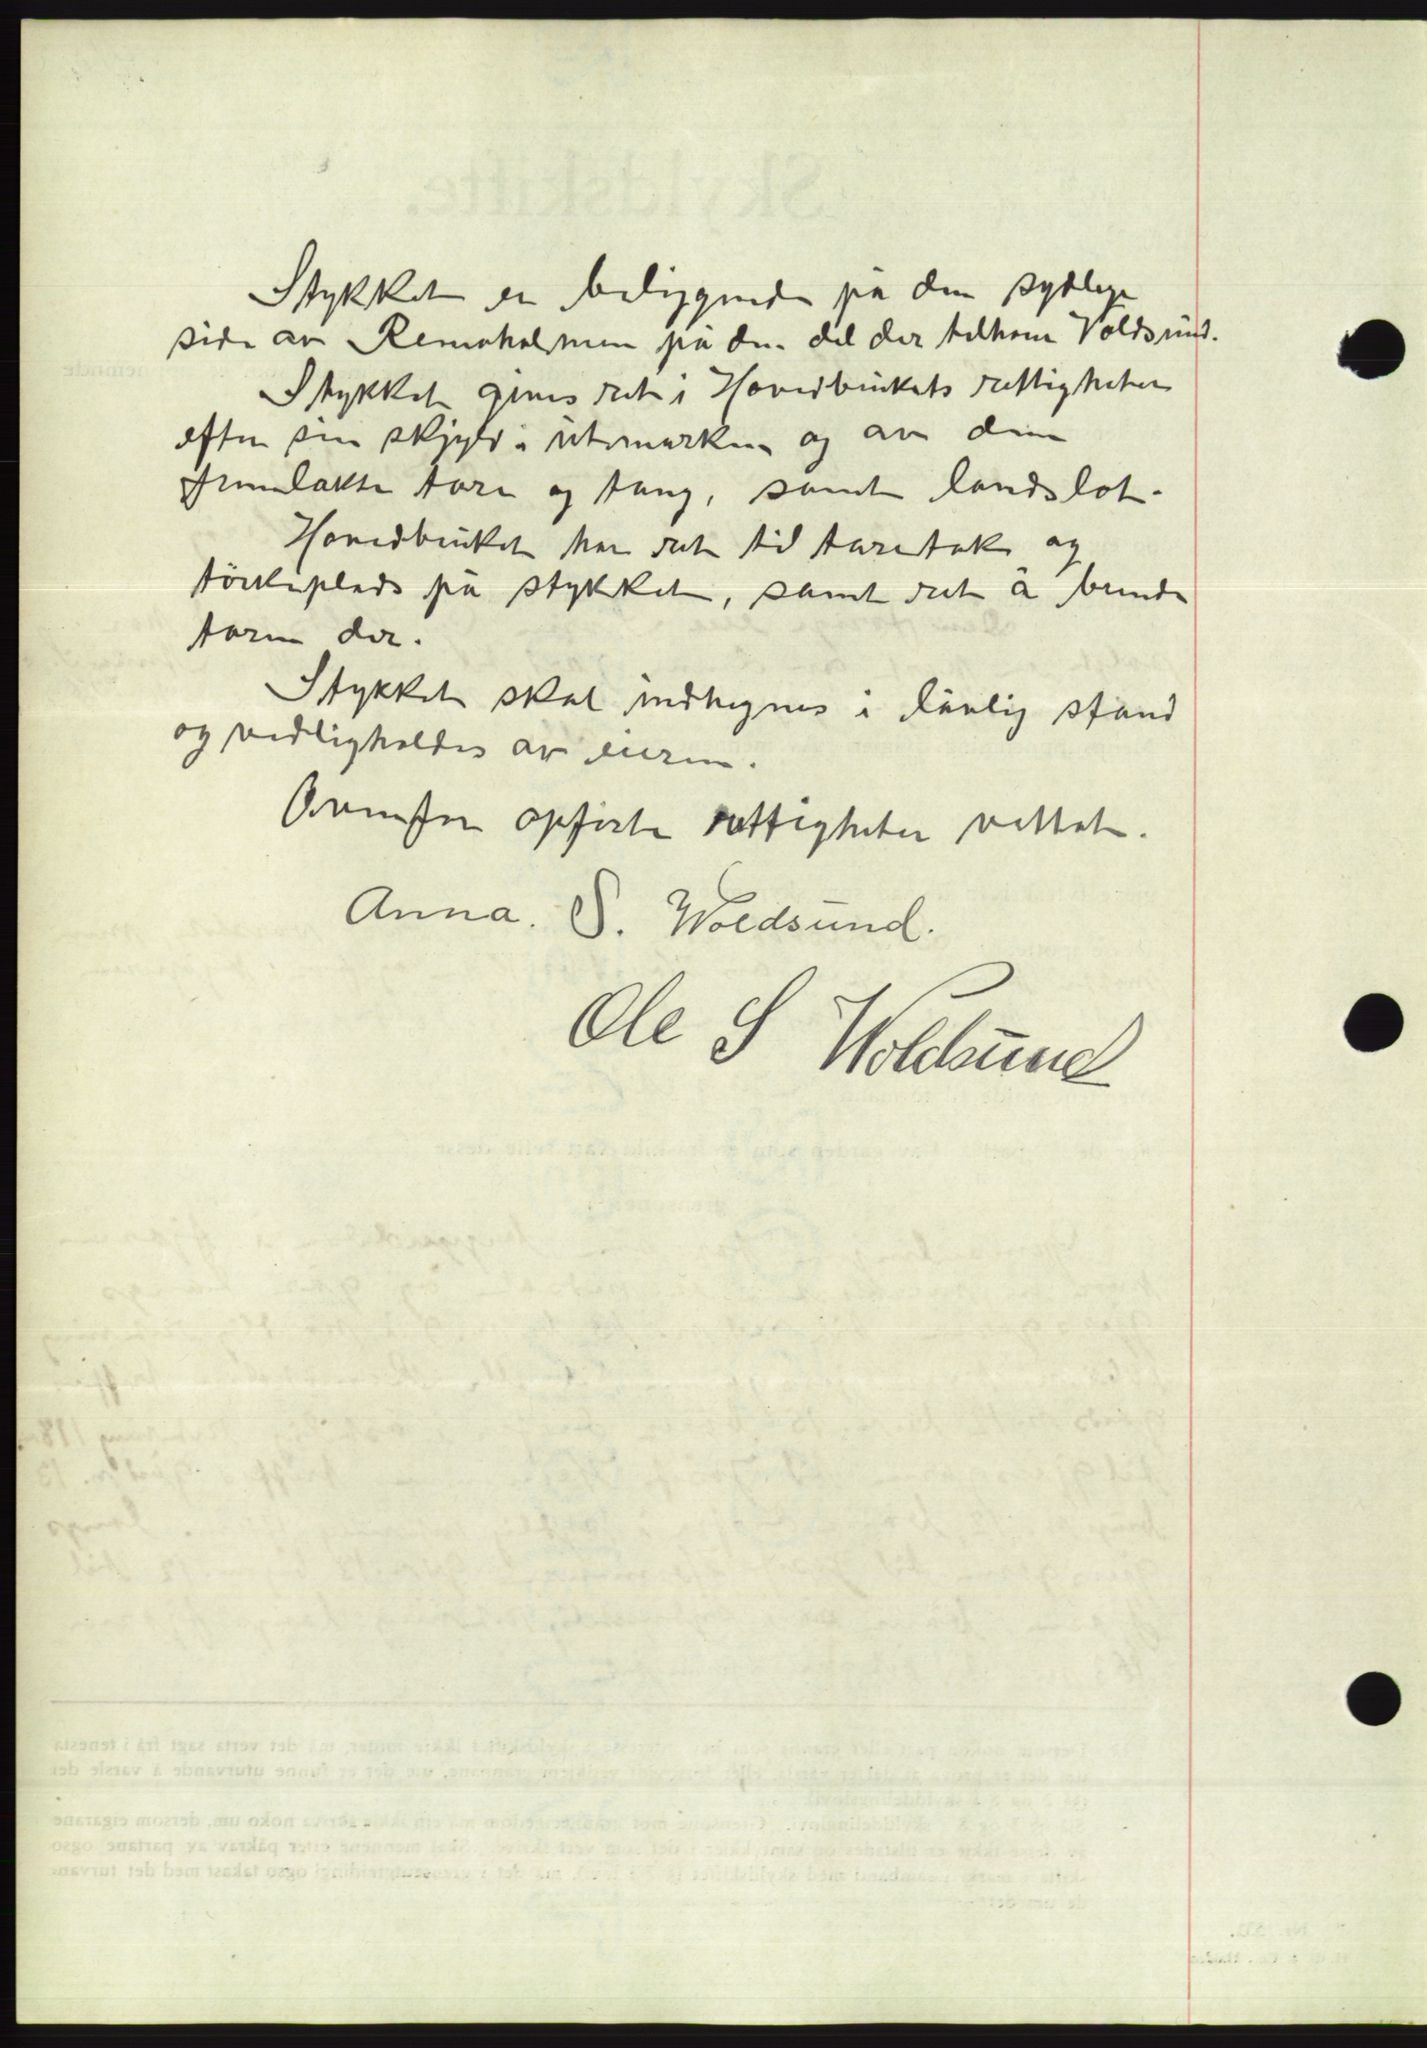 Stykket er beliggende på den sydlege
side av Remøholmen på den del der tilhører Voldsund.
Stykket gives ret i Hovedbrukets rettigheter
efter sin skjyld i utomarken og av den
fremlakte tare og tang, samt landslot.
Hovedbruket har ret til taretak og
törkeplads på stykket, samt ret å brende
taren der.
Stykket skal indhegnes i lovlig stand
og vedligholdes av eieren.
Ovenfor opførte rettigheter vettat.
Anna. S. Woldsund.
Ole S Woldsund